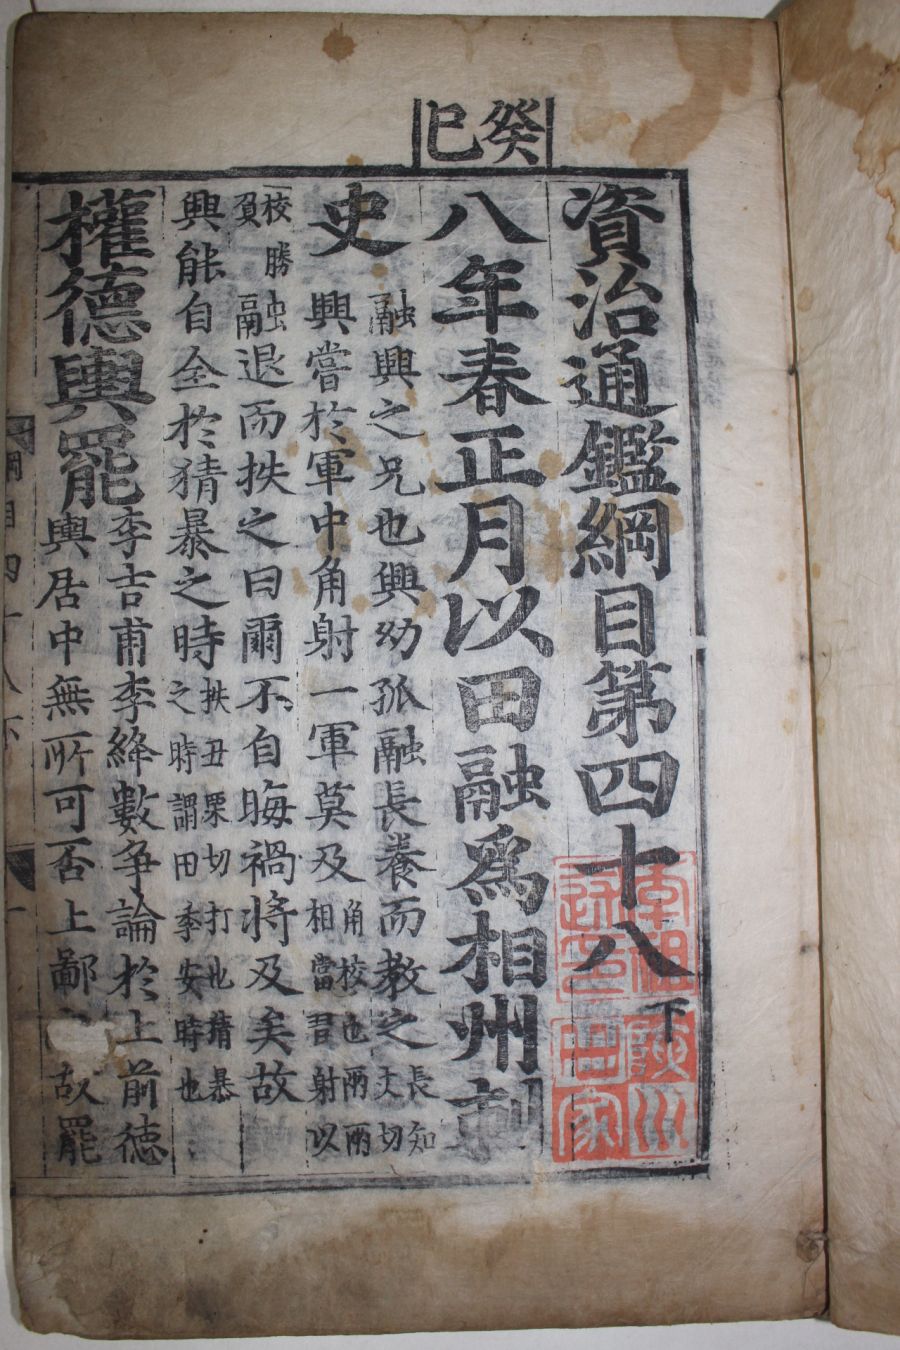 癸巳
資治通鑑綱目第四十八下
八年春正月以田融爲相州刺
史
融興之兄也興幼孤融長養而教之長知丈切
興嘗於軍中角射一軍莫及角校也兩兩相當習射以
校勝負融退而抶之曰爾不自晦禍將及矣故
興能自全於猜暴之時抶丑栗切打也猜暴之時謂田季安時也
權德輿罷
李吉甫李絳數争論於上前德
輿居中無所可否上鄙故罷